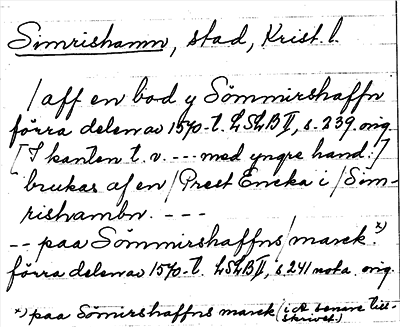 Simrishamn, stad, Krist. l.
/aff en bod y Sömmirshaffn
förra delen av 1570-t. LSLB II, s. 239. orig.
[I kanten t. v. --- med yngre hand:/]
brukas af en /Prest Encka i /Sim-
rishambn. ---
-- paa Sömmirshaffns /marck. x)
förra delen av 1570-t. LSLB II, s. 241 nota. orig.
x) paa Sömirshaffns marck (i A senare till-
skrivet.)